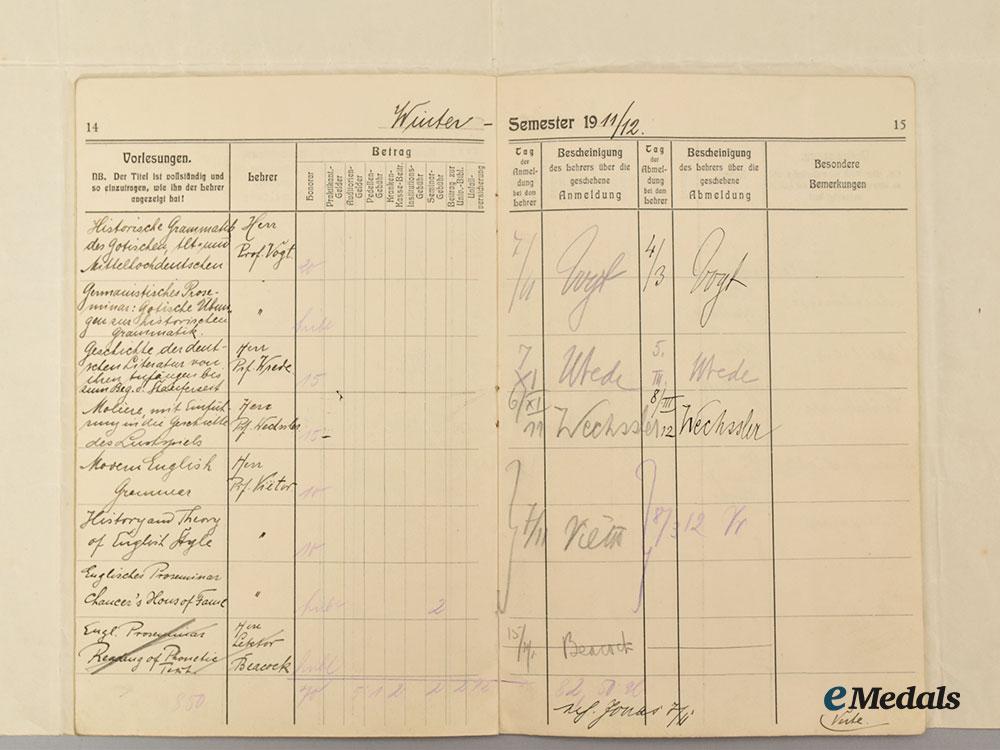 14
Winter-
Semester 1911/12.
15
Vorlesungen.
NB. Der Titel ist vollständig und
so einzutragen, wie ihn der Lehrer
angezeigt hat!
Lehrer
Betrag
Honorar
Praktikant.-
Gelder
Auditorien-
Gelder
Pedellen-
Gebühr
Kranken-
Kasse-Beitr.
Institutions-
Gebühr
Seminar-
Gebühr
Beitrag zur
Univ.-Bibl.
Unfall-
versicherung
Tag
der
Anmel-
dung
bei dem
Lehrer
Bescheinigung
des Lehrers über die
geschehene
Anmeldung
Tag
der
Abmel-
dung
bei dem
Lehrer
Bescheinigung
des Lehrers über die
geschehene
Abmeldung
Besondere
Bemerkungen
Historische Grammatik
des Gotischen, Alt- und
Mittelhochdeutschen
Herr
Prof. Vogt.
20
7/11
Vogt
4/3
Vogt
Germanistisches Prose-
minar: Gotische Übun-
gen zur historischen
Grammatik.
"
Geschichte der deut-
schen Literatur von
ihren Anfängen bis
zum Beg. d.
Herr
Prf. Wrede
15
7
XI
Wrede
5.
III.
Wrede
Molière, mit Einfüh-
rung in die Geschichte
des Lustspiels
Herr
Prf. Wechssler
15-
6/XI
11
Wechssler
8/III
12
Wechssler
Modern English
Grammar
Herr
Prf. Viëtor
10
History and Theory
of English Style
"
10
7/11
Viëtor
8/3 12 Vr
Englisches Proseminar
Chaucer's Hous of Fame
"
2
Engl. Proseminar
Reading of Phonetic
Texts
Herr
Lektor
Beacock
15/11
Beacock
850
70
5
1
2
2
82,50
Jonas 7/11
eMedals